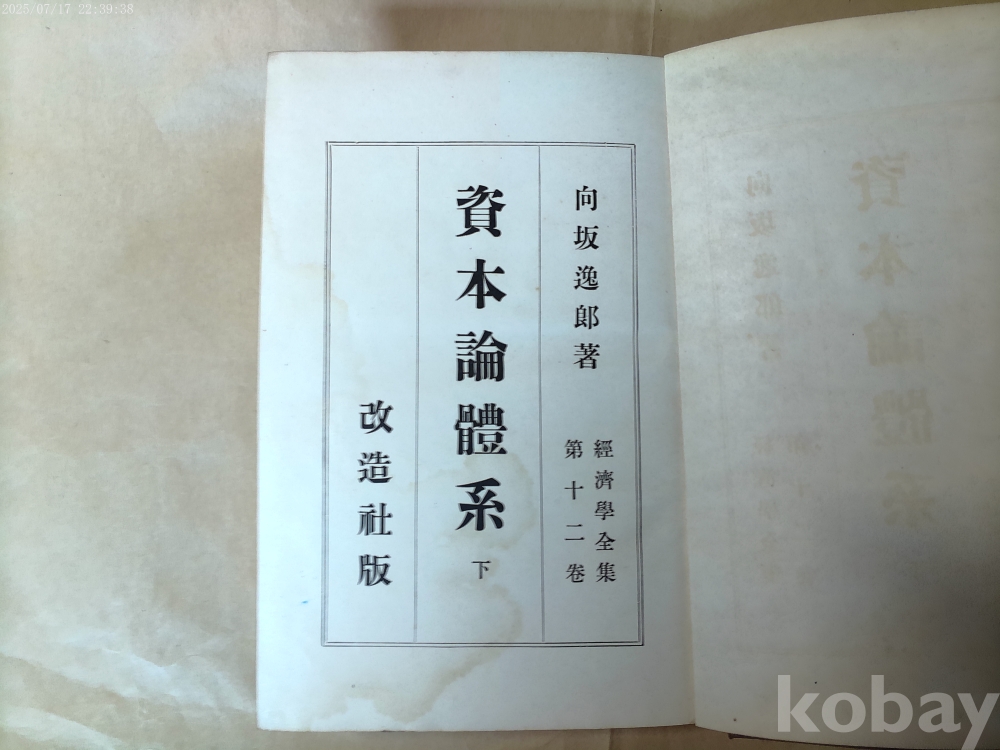 2025/07/17 22:39:38
向坂逸郎著
經濟學全集
第十二卷
資本論體系 下
改造社版
kobay